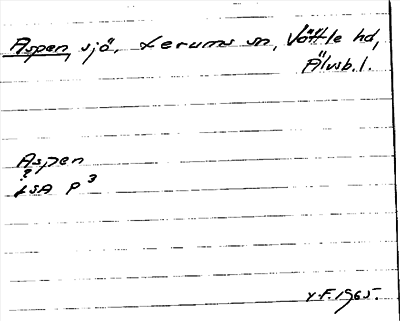 Aspen, sjö, Lerums sn, Vättle hd,
Älvsb. l.
Aspen
?
LSA P 3
Y.F. 1965.